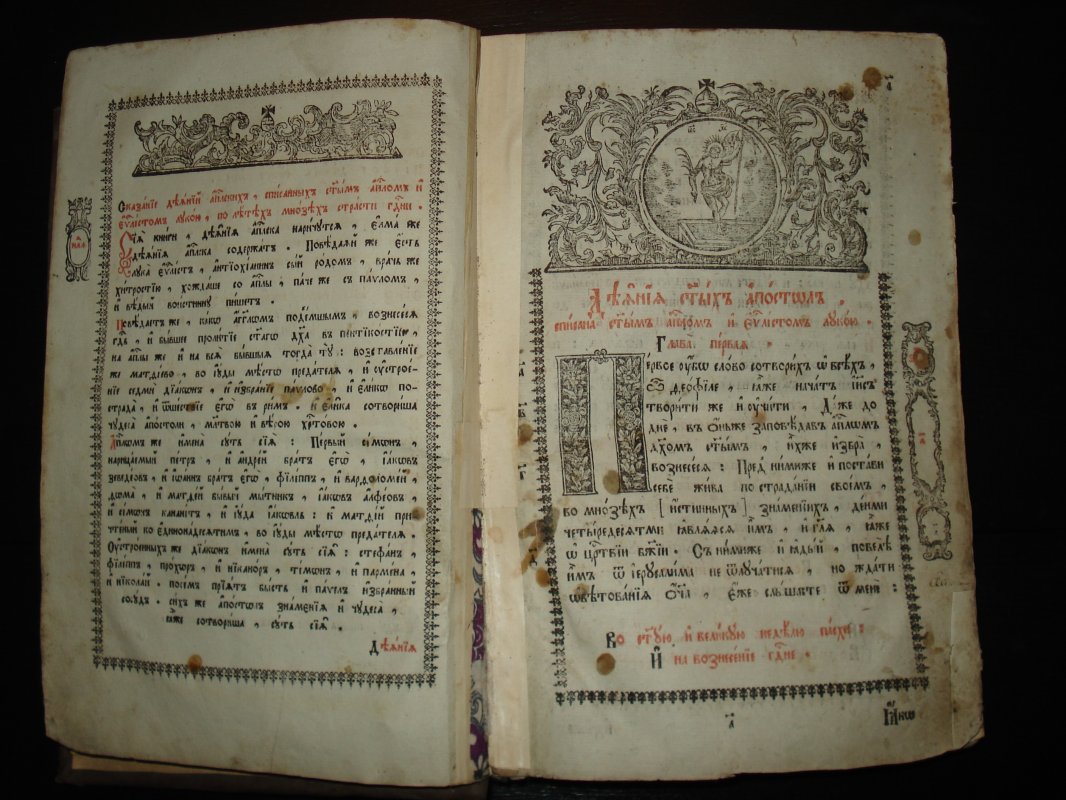 Сказанїе дѣѧ́нїй а҆пⷭ҇лскихъ, списанныхъ ст҃ы́мъ а҆пⷭ҇ломъ и҆
є҆ѵⷢ҇листомъ лꙋкою, по лѣтѣхъ мнозѣхъ страсти гдⷭ҇ни.
Сїѧ̀ книги, дѣѧ̑нїѧ а҆пⷭ҇лска наричꙋтсѧ, є҆лма же
дѣѧ̑нїѧ а҆пⷭ҇лска содержатъ. Повѣдаѧй же є҆сть
лꙋка є҆ѵⷢ҇листъ, а҆нтїохїанинъ сый родомъ, врачь же
хитростїю, хождаше со а҆пⷭ҇лы, паче же съ паѵломъ,
и҆ вѣдый воистиннꙋ пишетъ.
Повѣдаетъ же, какѡ а҆гг҃лѡмъ подемшымъ, вознесесѧ
гдⷭ҇ь, и҆ бывше пролитїе ст҃агѡ дх҃а въ пентикостїю,
на а҆пⷭ҇лы же и҆ на всѧ̑ бывшыѧ тогда̀ тꙋ̀: возставленїе
же матѳїево, во і҆ꙋды мѣстѡ предателѧ, и҆ ᲂу҆строе-
нїе седми дїакѡнъ, и҆ и҆збранїе паѵлово, и҆ є҆ликѡ по-
страда, и҆ ѿшествїе є҆гѡ̀ въ римъ. и҆ є҆лика сотвориша
чꙋдеса а҆постоли, мл҃твою и҆ вѣрою хрⷭ҇товою.
А҆пⷭ҇лѡмъ же и҆мена сꙋть сїѧ̑: Первый сїмѡнъ,
нарицаемый пе́тръ, и҆ а҆ндрей братъ є҆гѡ̀, і҆а́кѡвъ
зеведеовъ, и҆ і҆ѡаннъ братъ є҆гѡ̀, фїлїппъ, и҆ варѳоломей,
ѳома, и҆ матѳей бывый мытникъ, і҆акѡвъ а҆лфеовъ,
и҆ сїмѡнъ кананїтъ, и҆ і҆ꙋда і҆акѡвль: и҆ матѳїй при
чтеный во є҆дїнонадесѧтимъ, во і҆ꙋды мѣстѡ предателѧ.
Оу҆строенныхъ же дїакѡнъ и҆мена сꙋть сїѧ̑: стефанъ,
фїлїппъ, прохоръ, и҆ нїканоръ, тїмѡнъ, и҆ пармена,
и҆ нїколай. посемъ прїѧтъ бысть и҆ паѵлъ и҆збранный
сосꙋдъ. сихъ же а҆постѡлъ знаменїѧ и҆ чꙋдеса,
ꙗ҆же сотвориша, сꙋть сїѧ̑.
Дѣѧ̑нїѧ
Дѣѧ̑нїѧ ст҃ы́хъ а҆постѡлъ,
списана ст҃ы́мъ а҆пⷭ҇ломъ и҆ є҆ѵⷢ҇листомъ лꙋкою.
Глава первая.
Первое ᲂу҆бѡ слово сотворихъ ѡ҆ всѣхъ,
ѽ ѳеофїле, ꙗ҆же начатъ і҆и҃съ
творити же и҆ ᲂу҆чити, Даже до
дне, въ ѻ҆ньже заповѣдавъ а҆пⷭ҇лѡмъ
дх҃омъ ст҃ымъ, и҆хже и҆збра̀,
вознесесѧ: Пред нимиже и҆ постави
себѐ жива по страданїи своемъ,
во мнозѣхъ [и҆стинныхъ] знаменїихъ, деньми
четыредесѧтми ꙗ҆влѧѧсѧ и҆мъ, и҆ гл҃ѧ, ꙗ҆же
ѡ҆ црⷭ҇твїи бж҃їи. Съ нимиже и҆ ꙗ҆дый, повелѣ
и҆мъ ѿ і҆ерꙋсалима не ѿлꙋчатисѧ, но ждати
ѡ҆бѣтованїѧ ѻ҆ч҃а, є҆же слышасте ѿ мене:
Во ст҃ꙋю и҆ великꙋю недѣлю пасхи:
И҆ на вознесенїе гдⷭ҇не.
а
И҆́кѡ